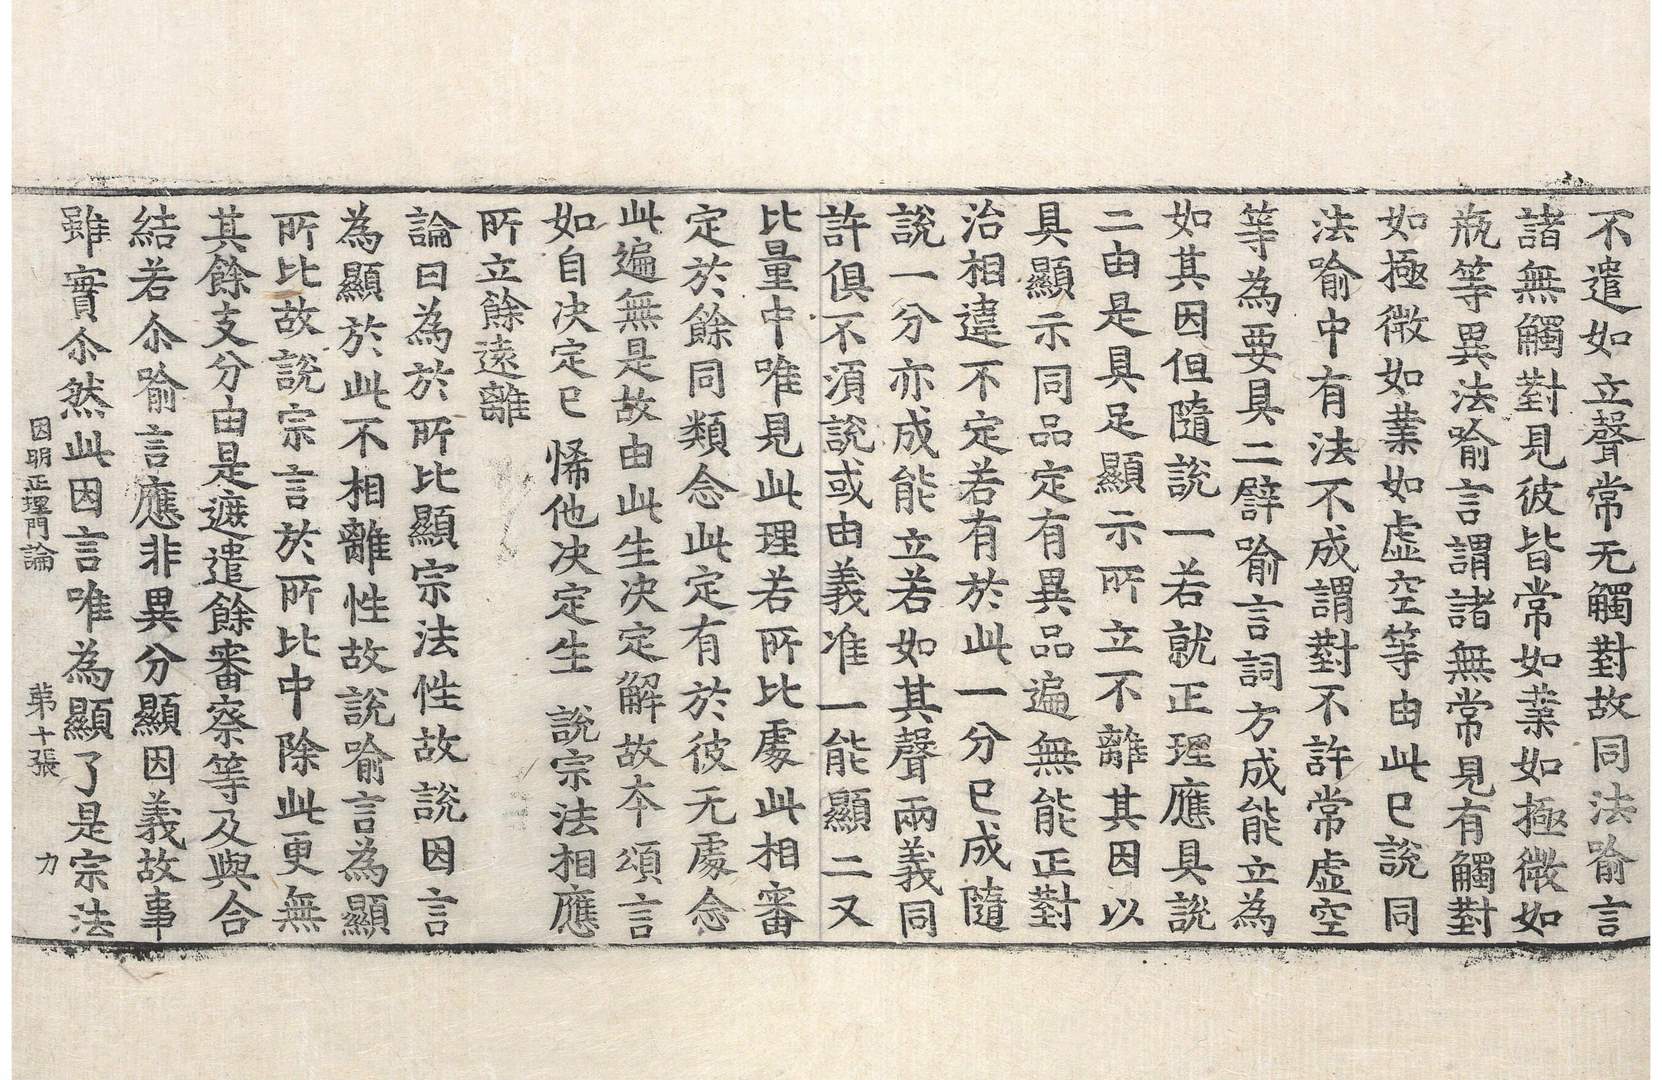 不遣如立聲常无觸對故同法喻言
諸無觸對見彼皆常如業如極微如
瓶等異法喻言謂諸無常見有觸對
如極微如業如虛空等由此已說同
法喻中有法不成謂對不許常虛空
等為要具二譬喻言詞方成能立為
如其因但隨說一若就正理應具說
二由是具足顯示所立不離其因以
具顯示同品定有異品遍無能正對
治相違不定若有於此一分已成隨
說一分亦成能立若如其聲兩義同
許俱不須說或由義准一能顯二又
比量中唯見此理若所比處此相審
定於餘同類念此定有於彼无處念
此遍無是故由此生決定解故本頌言
如自決定已 悕他決定生 說宗法相應
所立餘遠離
論曰為於所比顯宗法性故說因言
為顯於此不相離性故說喻言為顯
所比故說宗言於所比中除此更無
其餘支分由是遮遣餘審察等及與合
結若尒喻言應非異分顯因義故事
雖實尒然此因言唯為顯了是宗法
因明正理門論 苐十張 力